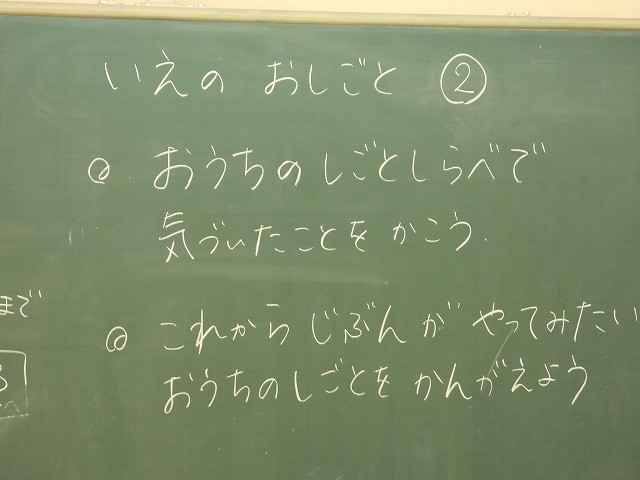 いえの おしごと ②
◎ おうちのしごとしらべで
気づいたことを かこう.
まで
◎ これから じぶんが やってみたい
おうちのしごとを かんがえよう